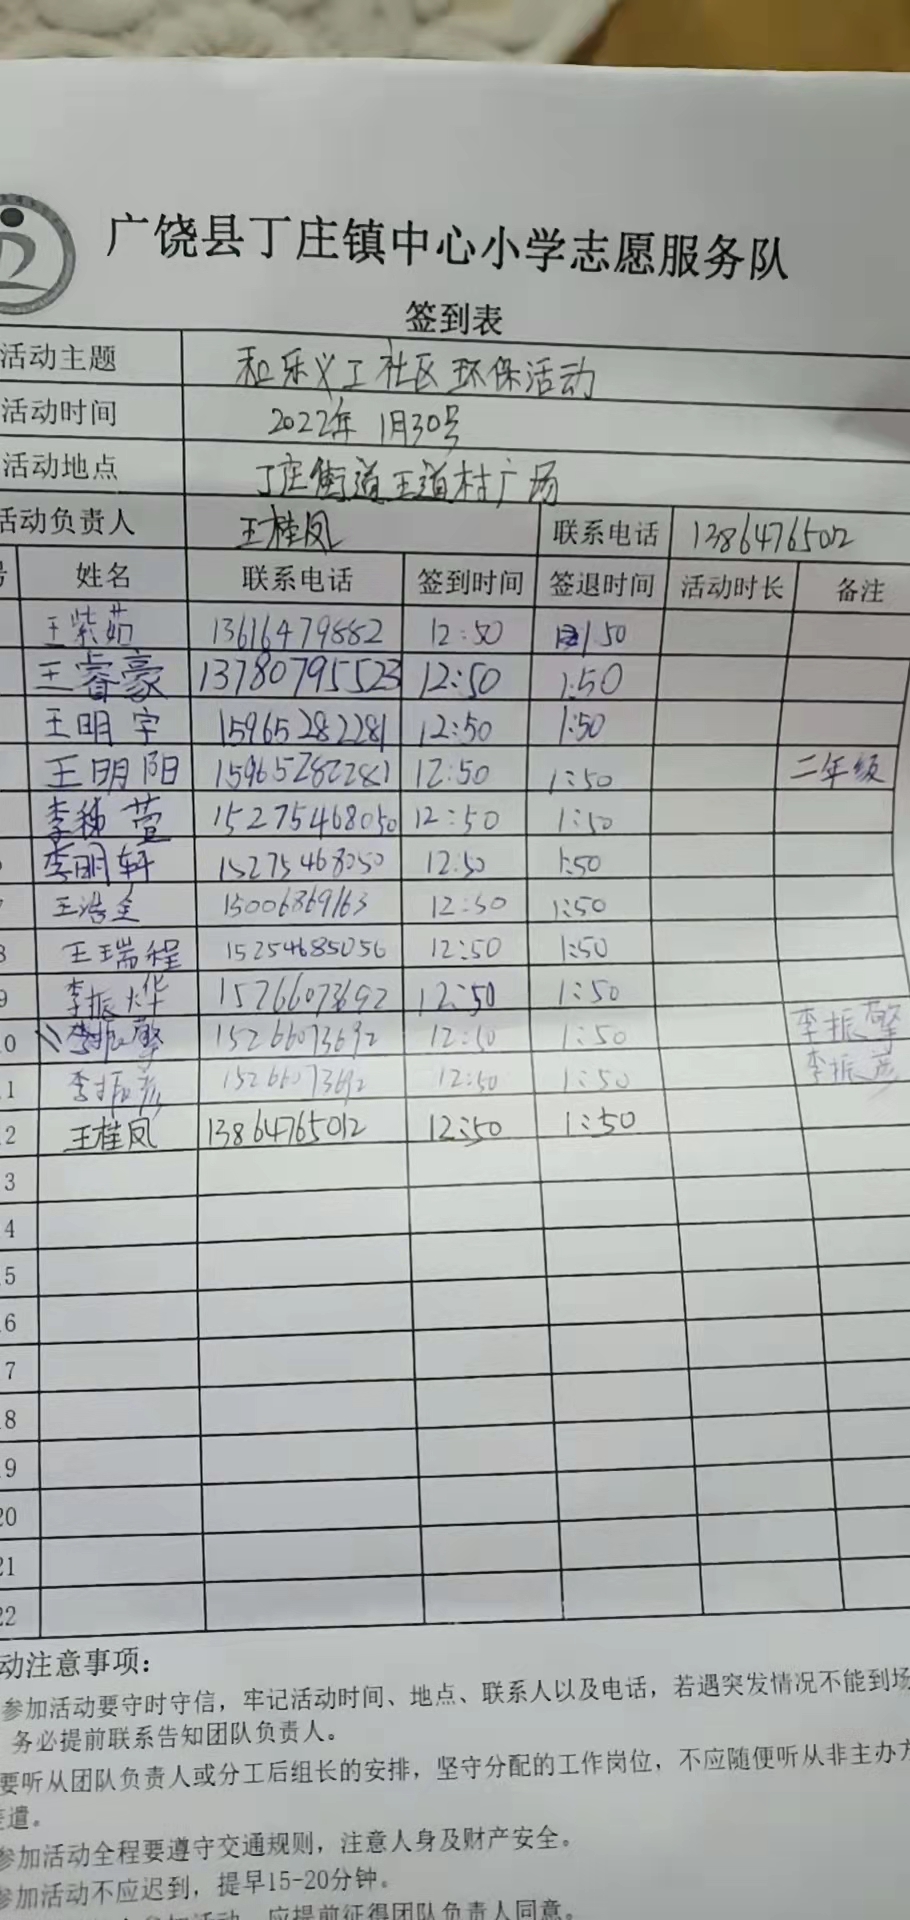 广饶县丁庄镇中心小学志愿服务队
签到表
活动主题 和乐义工社区环保活动
活动时间 2022年 1月30号
活动地点 丁庄街道王道村广场
活动负责人 王桂凤 联系电话 13864765012
号 姓名 联系电话 签到时间 签退时间 活动时长 备注
王紫茹 13616479882 12:50 1:50
王睿豪 13780795523 12:50 1:50
王明宇 15965282281 12:50 1:50
王明阳 15965282281 12:50 1:50 二年级
李 萱 15275468050 12:50 1:50
李明轩 15275468050 12:50 1:50
7 王浩全 15006869163 12:50 1:50
8 王瑞程 15254685056 12:50 1:50
9 李振烨 15266073692 12:50 1:50
0 李振擎 15266073692 12:50 1:50 李振擎
1 李振彦 15266073692 12:50 1:50 李振彦
2 王桂凤 13864765012 12:50 1:50
3
4
5
6
7
8
9
20
21
22
动注意事项：
参加活动要守时守信，牢记活动时间、地点、联系人以及电话，若遇突发情况不能到场
务必提前联系告知团队负责人。
要听从团队负责人或分工后组长的安排，坚守分配的工作岗位，不应随便听从非主办方
差遣。
参加活动全程要遵守交通规则，注意人身及财产安全。
参加活动不应迟到，提早15-20分钟。
参加活动，应提前征得团队负责人同意。